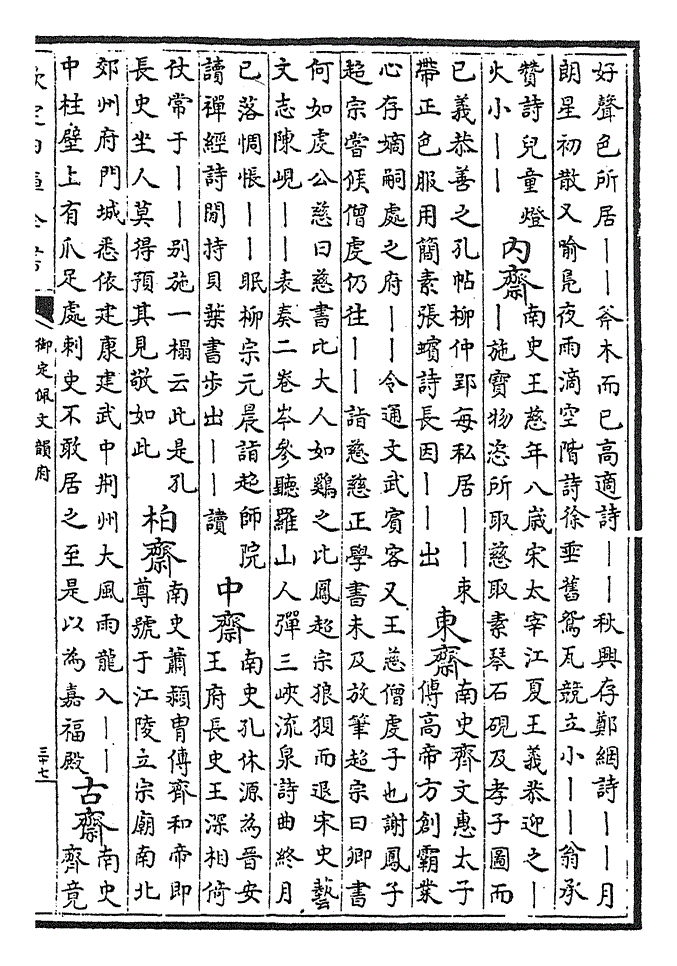 好聲色所居丨丨斧木而已高適詩丨丨丨秋興存鄭綱詩丨丨丨月
朗星初散又喻鳧夜雨滴空階詩徐垂舊鴛瓦競立小丨丨翁承
贊詩兒童燈
火小丨丨
內齋
南史王慈年八歲宋太宰江夏王義恭迎之丨
丨施寶物恣所取慈取素琴石硯及孝子圖而
已義恭善之孔帖柳仲郢每私居丨丨束
帶正色服用簡素張蠙詩長因丨丨出
東齋
南史齊文惠太子
傳高帝方創霸業
心存嫡嗣處之府丨丨令通文武賓客又王慈僧虔子也謝鳳子
超宗嘗候僧虔仍往丨丨詣慈慈正學書未及放筆超宗曰卿書
何如虔公慈曰慈書比大人如鷄之比鳳超宗狼狽而退宋史藝
文志陳峴丨丨表奏二卷岑參聽羅山人彈三峽流泉詩曲終月
已落惆悵丨丨眠柳宗元晨詣超師院
讀禪經詩閒持貝葉書步出丨丨讀
中齋
南史孔休源為晉安
王府長史王深相倚
仗常于丨丨别施一榻云此是孔
長史坐人莫得預其見敬如此
柏齋
南史蕭穎胄傳齊和帝即
尊號于江陵立宗廟南北
郊州府門城悉依建康建武中荆州大風雨龍入丨丨
中柱壁上有爪足處刺史不敢居之至是以為嘉福殿
古齋
南史
齊竟
欽定四庫全書
御定佩文韻府
三十七